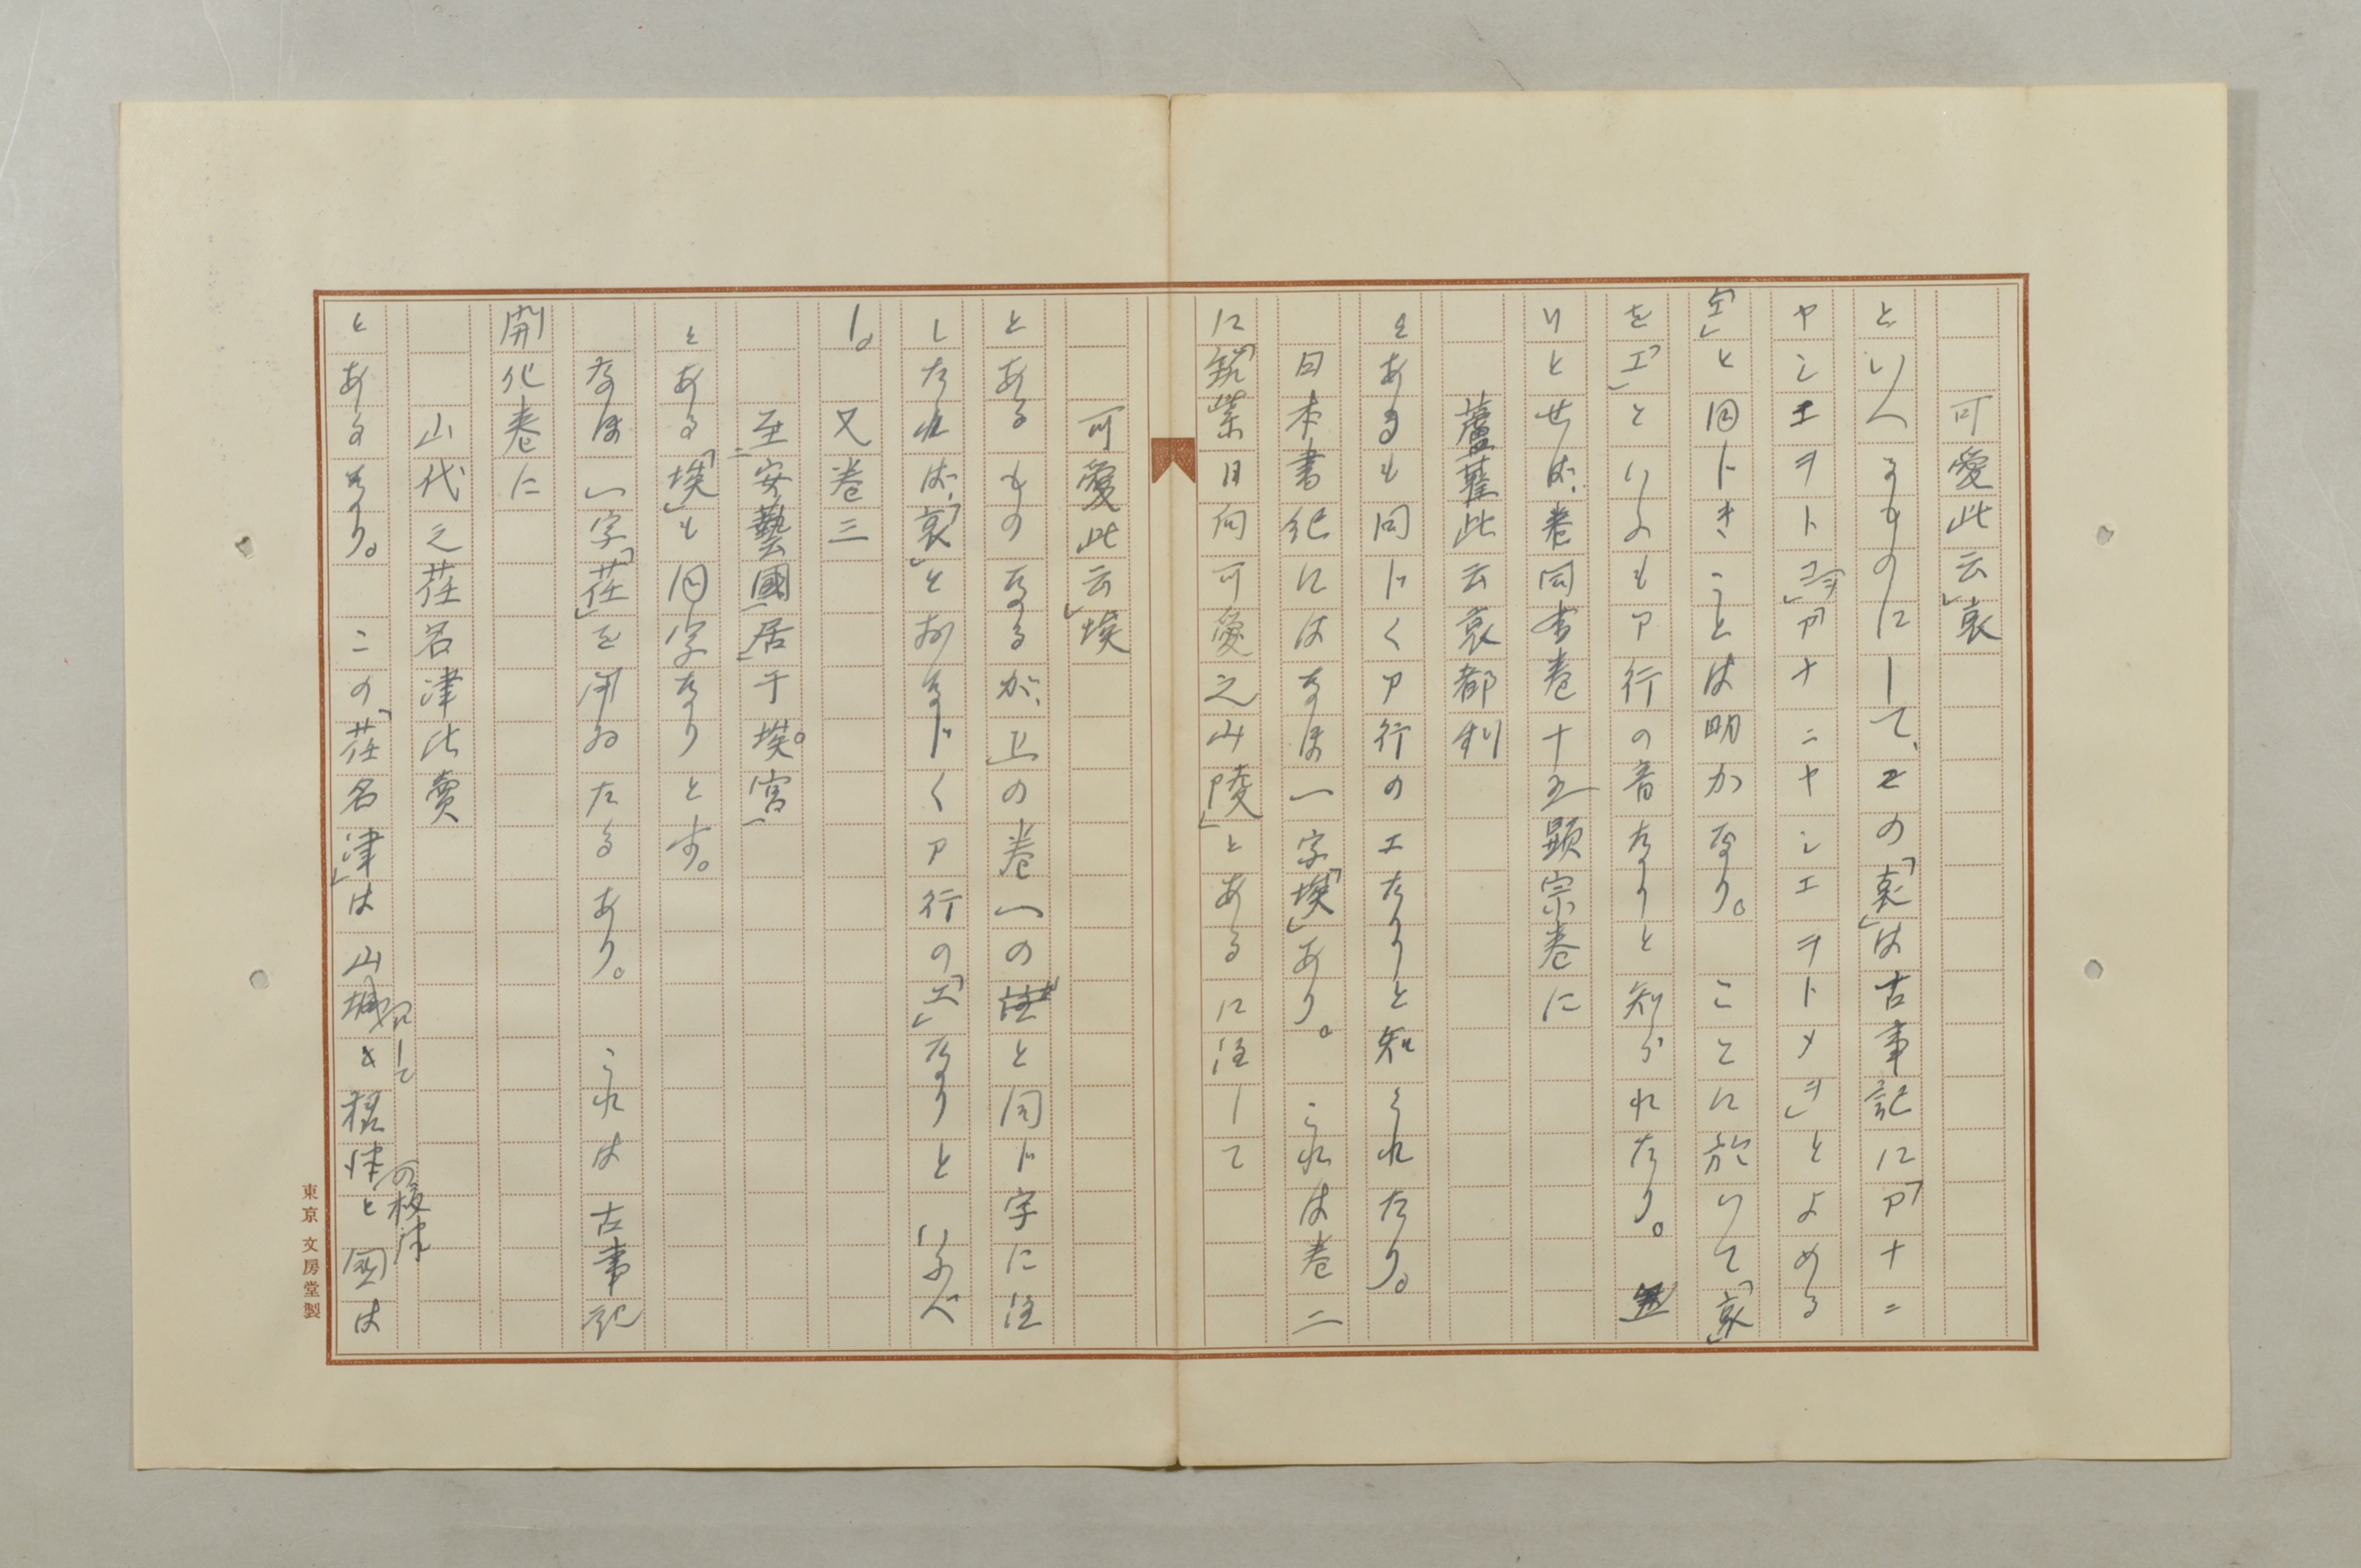 可愛此云」哀
といへるものにして、その「哀」は古事記に「アナニ
ヤシエヲトコヲ」「アナニヤシエヲトメヲ」とよめる
「エ」と同じきことは明かなり。 ことに於いて「哀」
を「エ」といふもア行の音なりと知られたり。
りとせば、巻同書巻十五顕宗巻に
蘆萑此云哀都利
とあるも同じくア行のエなりと知られたり。
日本書紀にはなほ一字「埃」あり。 これは巻二
に「筑紫日向可愛之山陵」とあるに注して
可愛此云」埃
とあるものなるが、上の巻一の注と同じ字に注
したれば、「哀」とおなじくア行の「エ」なりといふべ
し。 又巻三
至安藝國居于埃宮
とある「埃」も同字なりとす。
なほ一字「荏」を用ゐたるあり。 これは古事記
開化巻に
山代之荏名津比賣
とあるなり。 この「荏名津」は山城にして
と 攝津の榎津と國は
東京 文房堂製